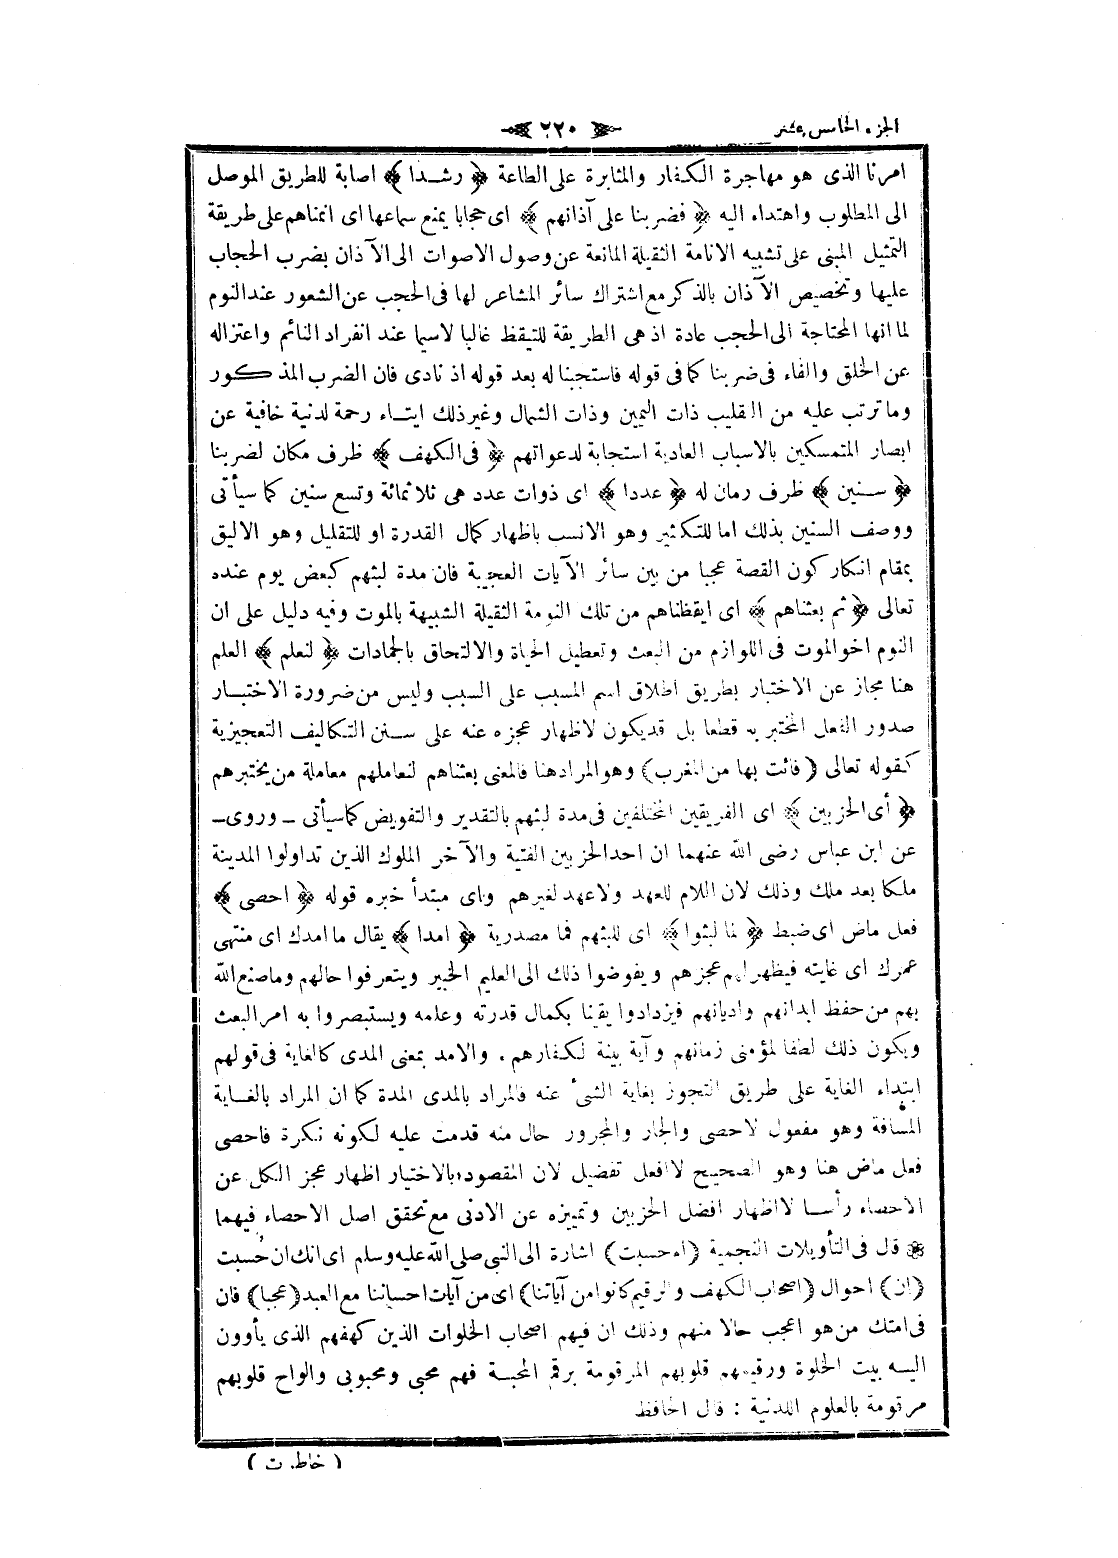 الجزء الخامس عشر
٢٢٠
امرنا الذى هو مهاجرة الكفار والمثابرة على الطاعة ﴿ رشدا ﴾ اصابة للطريق الموصل
الى المطلوب واهتداء اليه ﴿ فضربنا على آذانهم ﴾ اى حجابا يمنع سماعها اى انمناهم على طريقة
التمثيل المبنى على تشبيه الانامة الثقيلة المانعة عن وصول الاصوات الى الآذان بضرب الحجاب
عليها وتخصيص الآذان بالذكر مع اشتراك سائر المشاعر لها فى الحجب عن الشعور عند النوم
لما انها المحتاجة الى الحجب عادة اذ هى الطريقة للتيقظ غالبا لاسيما عند انفراد النائم واعتزاله
عن الخلق والفاء فى ضربنا كما فى قوله فاستجبنا له بعد قوله اذ نادى فان الضرب المذكور
وما ترتب عليه من التقليب ذات اليمين وذات الشمال وغير ذلك ايتاء رحمة لدنية خافية عن
ابصار المتمسكين بالاسباب العادية استجابة لدعواتهم ﴿ فى الكهف ﴾ ظرف مكان لضربنا
﴿ سنين ﴾ ظرف زمان له ﴿ عددا ﴾ اى ذوات عدد هى ثلاثمائة وتسع سنين كما سيأتى
ووصف السنين بذلك اما للتكثير وهو الانسب باظهار كمال القدرة او للتقليل وهو الاليق
بمقام انكار كون القصة عجبا من بين سائر الآيات العجيبة فان مدة لبثهم كبعض يوم عنده
تعالى ﴿ ثم بعثناهم ﴾ اى ايقظناهم من تلك النومة الثقيلة الشبيهة بالموت وفيه دليل على ان
النوم اخو الموت فى اللوازم من البعث وتعطيل الحياة والالتحاق بالجمادات ﴿ لنعلم ﴾ العلم
هنا مجاز عن الاختبار بطريق اطلاق اسم المسبب على السبب وليس من ضرورة الاختبار
صدور الفعل المختبر به قطعا بل قد يكون لاظهار عجزه عنه على سنن التكاليف التعجيزية
كقوله تعالى ( فائت بها من المغرب ) وهو المراد هنا فالمعنى بعثناهم لنعاملهم معاملة من يختبرهم
﴿ أى الحزبين ﴾ اى الفريقين المختلفين فى مدة لبثهم بالتقدير والتفويض كما سيأتى ـ وروى ـ
عن ابن عباس رضى الله عنهما ان احد الحزبين الفتية والآخر الملوك الذين تداولوا المدينة
ملكا بعد ملك وذلك لان اللام للعهد ولا عهد لغيرهم واى مبتدأ خبره قوله ﴿ احصى ﴾
فعل ماض اى ضبط ﴿ لما لبثوا ﴾ اى للبثهم فما مصدرية ﴿ امدا ﴾ يقال ما امدك اى منتهى
عمرك اى غايته فيظهر لهم عجزهم ويفوضوا ذلك الى العليم الخبير ويتعرفوا حالهم وما صنع الله
بهم من حفظ ابدانهم واديانهم فيزدادوا يقينا بكمال قدرته وعلمه ويستبصروا به امر البعث
ويكون ذلك لطفا لمؤمنى زمانهم وآية بينة لكفارهم . والامد بمعنى المدى كالغاية فى قولهم
ابتداء الغاية على طريق التجوز بغاية الشئ عنه فالمراد بالمدى المدة كما ان المراد بالغاية
المسافة وهو مفعول لاحصى والجار والمجرور حال منه قدمت عليه لكونه نكرة فاحصى
فعل ماض هنا وهو الصحيح لا افعل تفضيل لان المقصود بالاختيار اظهار عجز الكل عن
الاحصاء رأسا لا اظهار افضل الحزبين وتمييزه عن الادنى مع تحقق اصل الاحصاء فيهما
❁ قال فى التأويلات النجمية ( ام حسبت ) اشارة الى النبى صلى الله عليه وسلم اى انك ان حسبت
( ان ) احوال ( اصحاب الكهف والرقيم كانوا من آياتنا ) اى من آيات احساننا مع العبد ( عجبا ) فان
فى امتك من هو اعجب حالا منهم وذلك ان فيهم اصحاب الخلوات الذين كهفهم الذى يأوون
اليه بيت الخلوة ورقيمهم قلوبهم المرقومة برقم المحبة فهم محبى ومحبوبى والواح قلوبهم
مرقومة بالعلوم اللدنية : قال الحافظ
( خاطرت )